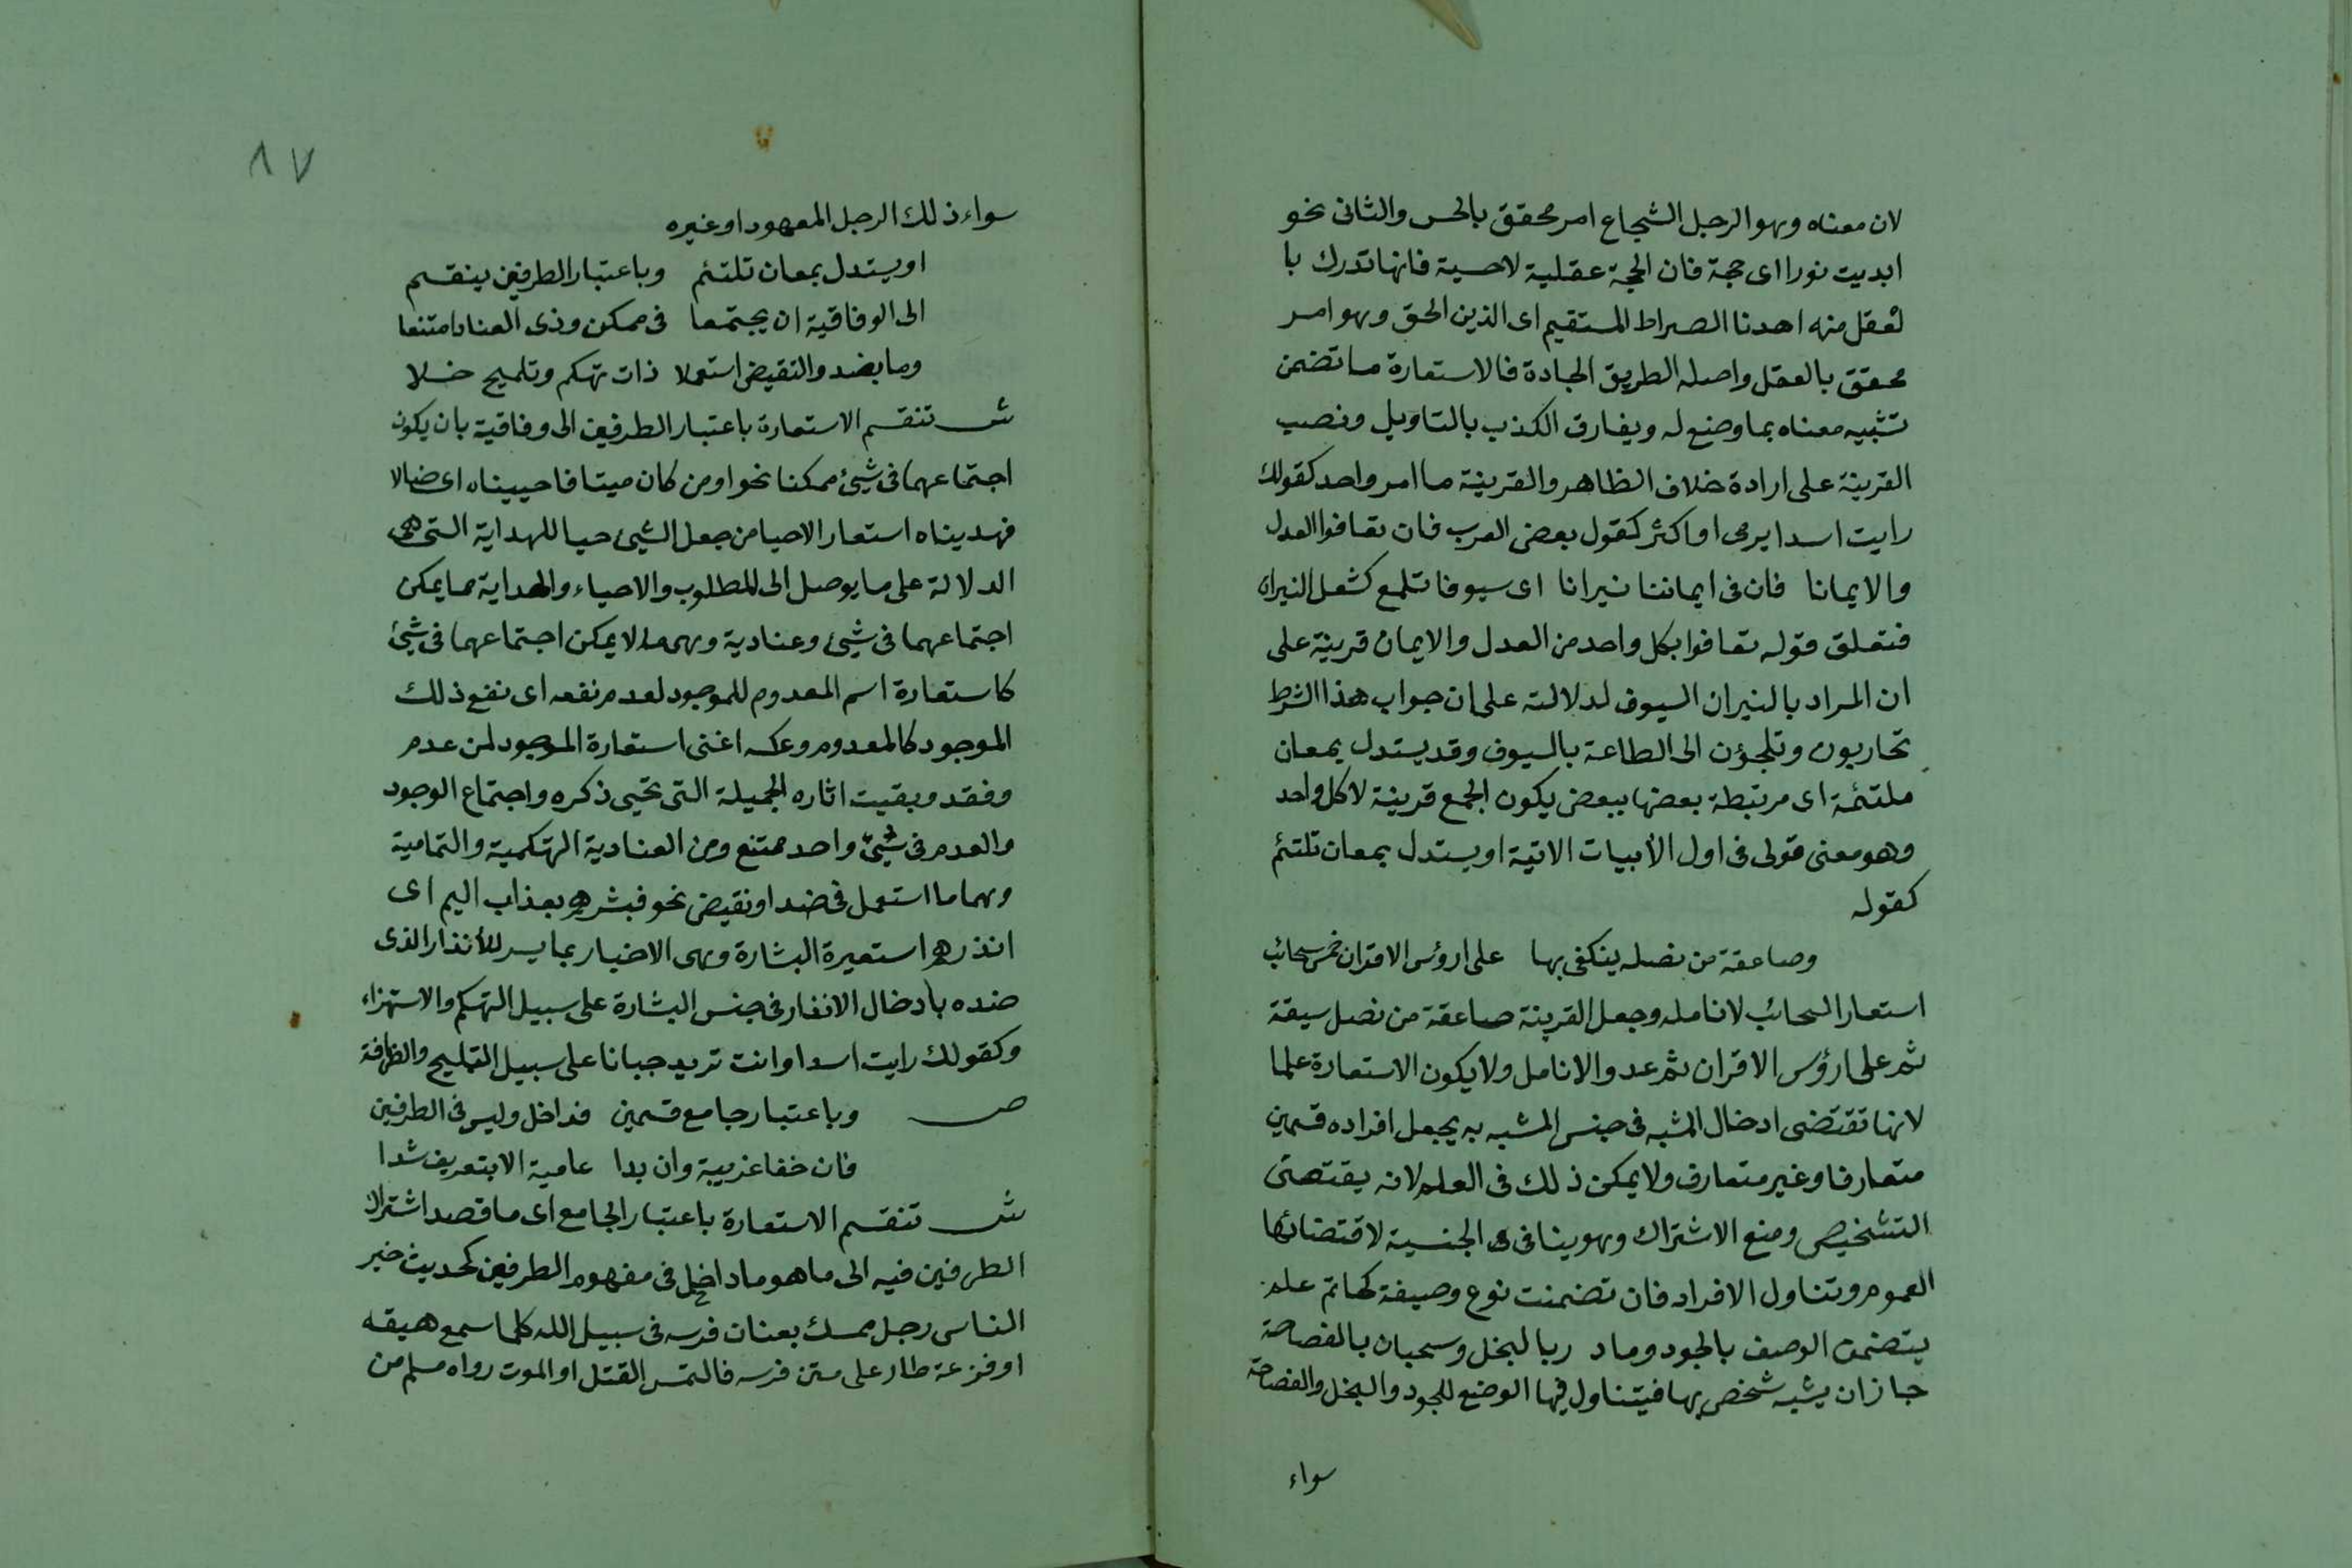 لان معناه وهو الرجل الشجاع امر محقق بالحس والثانى نحو
ابديت نورا اى حجة فان الحجة عقلية لا حسية فانها تدرك با
لعقل منه اهدنا الصراط المستقيم اى الذين الحق وهو امر
محقق بالعقل واصله الطريق الجادة فالاستعارة ما تضمن
تشبيه معناه بما وضع له ويفارق الكذب بالتاويل ونصب
القرينة على ارادة خلاف الظاهر والقرينة ما امر واحد كقولك
رايت اسدا يرمى او اكثر كقول بعض العرب فان تعافوا العدل
والايمانا فان فى ايماننا نيرانا اى سيوفا تلمع كشعل النيران
فتعلق قوله تعافوا بكل واحد من العدل والايمان قرينة على
ان المراد بالنيران السيوف لدلالته على ان جواب هذا الشرط
تحاربون وتلجؤن الى الطاعة بالسيوف وقد يستدل بمعان
ملتئمة اى مرتبطة بعضها ببعض يكون الجمع قرينة لا كل واحد
وهو معنى قولى فى اول الأبيات الاتية او يستدل بمعان تلتئم
كقوله
وصاعقة من نصله ينكفى بها على ارؤس الاقران خمس سحائب
استعار السحائب لانامله وجعل القرينة صاعقة من نصل سيقة
ثم على ارؤس الاقران ثم عدد الانامل ولا يكون الاستعارة علما
لانها تقتضى ادخال المشبه فى جنس المشبه به يجعل افراده قسمين
متعارفا وغير متعارف ولا يمكن ذلك فى العلم لانه يقتضى
التشخيص ومنع الاشتراك وهو ينافى الجنسية لاقتضائها
العموم وتناول الافراد فان تضمنت نوع وصيفة كحاتم علم
يتضمن الوصف بالجود وماد ربا لبخل وسحبان بالفصاحة
جاز ان يشبه شخص بها فيتناول فيها الوضع للجود والبخل والفصاحة
سواء
٨٧
سواء ذلك الرجل المعهود او غيره
او يستدل بمعان تلتئم وباعتبار الطرفين ينقسم
الى الوفاقية ان يجتمعا فى ممكن وذى العناد امتنعا
وما بضد والنقيض استعملا ذات تهكم وتلميح خلا
ش تنقسم الاستعارة باعتبار الطرفين الى وفاقية بان يكون
اجتماعهما فى شيئ ممكنا نحو اومن كان ميتا فاحييناه اى ضالا
فهديناه استعار الاحيا من جعل الشيئ حيا للهداية التى هى
الدلالة على ما يوصل الى المطلوب والاحياء والهداية مما يمكن
اجتماعهما فى شيئ وعنادية وهى ما لا يمكن اجتماعهما فى شيئ
كاستعارة اسم المعدوم للموجود لعدم نفعه اى نفع ذلك
الموجود كالمعدوم وعكسه اغنى استعارة الموجود لمن عدم
وفقد وبقيت اثاره الجميلة التى تحيى ذكره واجتماع الوجود
والعدم فى شيئ واحد ممتنع ومن العنادية التهكمية والتمامية
وهما ما استعمل فى ضد او نقيض نحو فبشرهم بعذاب اليم اى
انذرهم استعيرة البشارة وهى الاخبار بما يسر للأنذار الذى
ضده بادخال الانذار فى جنس البشارة على سبيل التهكم والاستهزاء
وكقولك رايت اسدا وانت تريد جبانا على سبيل التمليح والظرافة
ص وباعتبار جامع قسمين فداخل وليس فى الطرفين
فان خفا غريبة وان بدا عامية الا بتعريف شدا
ش تنقسم الاستعارة باعتبار الجامع اى ما قصد اشتراك
الطرفين فيه الى ما هو ما داخل فى مفهوم الطرفين كحديث خير
الناس رجل ممسك بعنان فرسه فى سبيل الله كلما سمع هيقه
او فزعة طار على متن فرسه فالتمس القتل او الموت رواه مسلم من